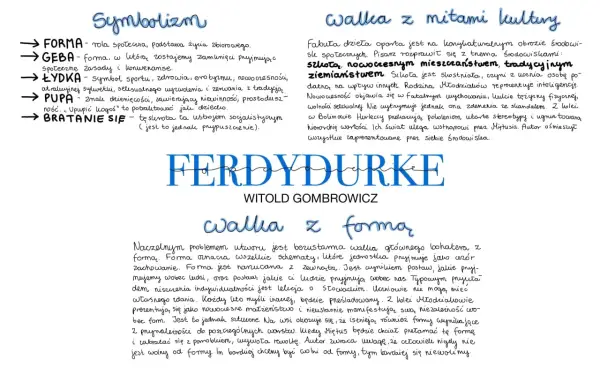 Symbolizm
→ FORMA - rola społeczna, podstawa życia zbiorowego.
→ GĘBA - forma, w której zostajemy zamknięci przyjmując
społeczne zasady i konwenanse.
→ ŁYDKA - symbol sportu, zdrowia, erotyzmu, nowoczesności,
seksualnego wyzwolenia i zerwania z tradycją
→ PUPA - znak dziecinności, zawierający niewinność, prostodusz-
ność. „Upupić kogoś" to potraktować jak dziecko
→ BRATANIE SIĘ - tęsknota za ustrojem socjalistycznym
(jest to jednak przypuszczenie).
walka z mitami kultury
Fabuła dzieła oparta jest na karykaturalnym obrazie środowi-
sk społecznych. Pisarz rozprawił się z trzema środowiskami:
szkołą, nowoczesnym mieszczaństwem, tradycyjnym
ziemiaństwem. Szkoła jest skostniała, czyni z ucznia osobę po-
datną na wpływy innych. Rodzina Młodziaków reprezentuje inteligencję.
Nowoczesność objawia się w fatalnym wychowaniu, kulcie tężyzny fizycznej,
wolności seksualnej. Nie wytrzymuje jednak ona zderzenia ze skandalem. Z kolei
w Bolimowie Hurleccy
wartości. Ich świat ulega przez Miętusa. Autor ośmieszył
wszystkie zaprezentowane przez siebie środowiska.
FERDYDURKE
WITOLD GOMBROWICZ
walka z formą
Naczelnym problemem utworu jest bezustanna walka głównego bohatera, z
formą. Forma oznacza wszelkie schematy, które jednostka przyjmuje jako wzór
zachowania. Forma jest narzucana z zewnątrz. Jest wynikiem postaw, jakie przyj-
mujemy wobec ludzi, oraz postaw jakie ci ludzie przyjmują wobec nas. Typowym przykła-
dem, niszczenia indywidualności jest lekcja o Słowackim. Uczniowie nie mogą mieć
własnego zdania. Każdy kto myśli inaczej, będzie prześladowany. Z kolei Młodziakowie
prezentują się jako nowoczesne małżeństwo i nieustannie manifestują swą niezależność wo-
bec form. Jest to jednak sztuczne. Na wsi okazuje się, że istnieją również formy wynikające
z przynależności do poszczególnych warstw. Kiedy Miętus będzie chciał przełamać tę formę
i zbratać się z parobkiem, wywoła rewoltę. Autor zwraca uwagę, że człowiek nigdy nie
jest wolny od formy. Im bardziej chcemy być wolni od formy, tym bardziej się niewolimy.